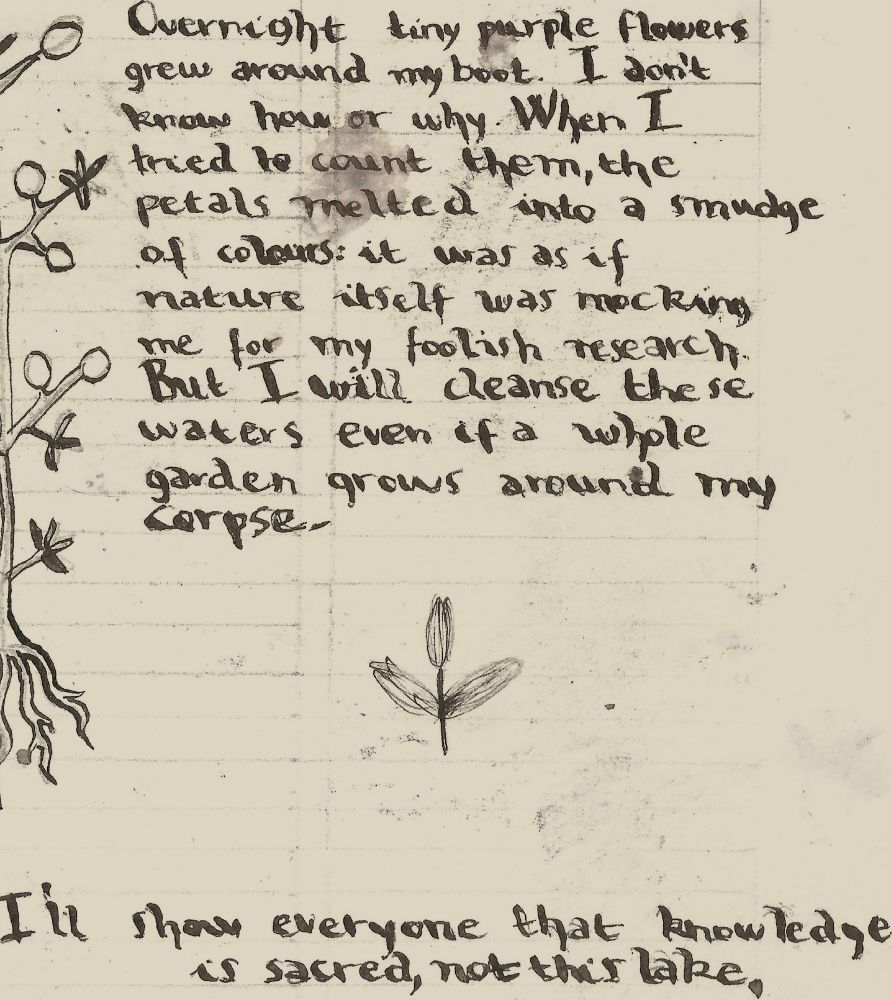 Overnight tiny purple flowers
grew around my boot. I don't
know how or why. When I
tried to count them, the
petals melted into a smudge
of colours: it was as if
nature itself was mocking
me for my foolish research.
But I will cleanse these
waters even if a whole
garden grows around my
corpse.
I'll show everyone that knowledge
is sacred, not this lake.